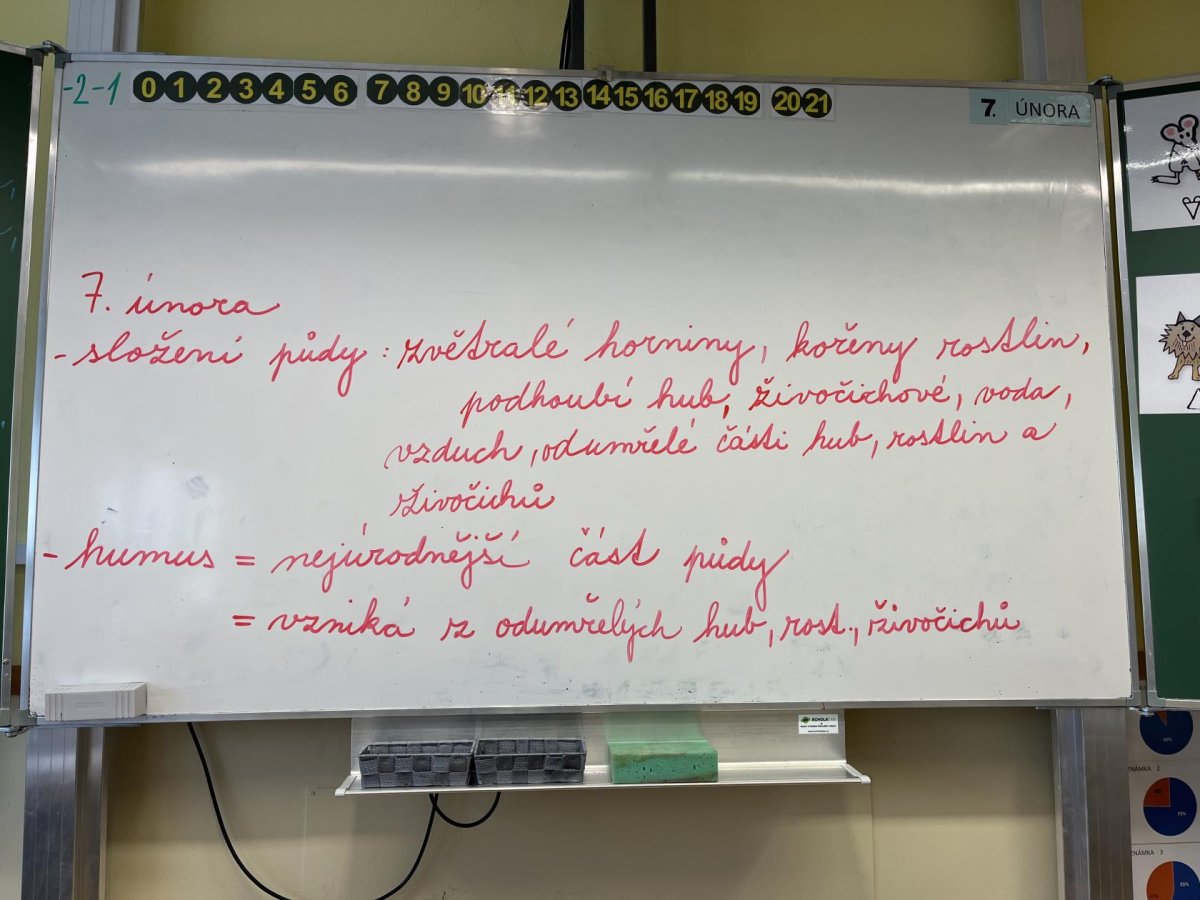 -2-1 0 1 2 3 4 5 6 7 8 9 10 11 12 13 14 15 16 17 18 19 20 21
7. ÚNORA
7. února
- složení půdy : zvětralé horniny, kořeny rostlin,
podhoubí hub, živočichové, voda,
vzduch, odumřelé části hub, rostlin a
živočichů
- humus = nejúrodnější část půdy
= vzniká z odumřelých hub, rost., živočichů
SCHOLA
ZNÁMKA 2
75%
ZNÁMKA 3